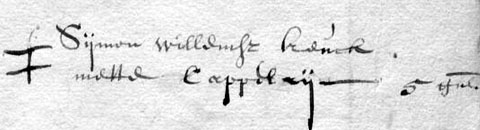 Sijmon willemsz keuck
mette Cappelrij 5 gul.